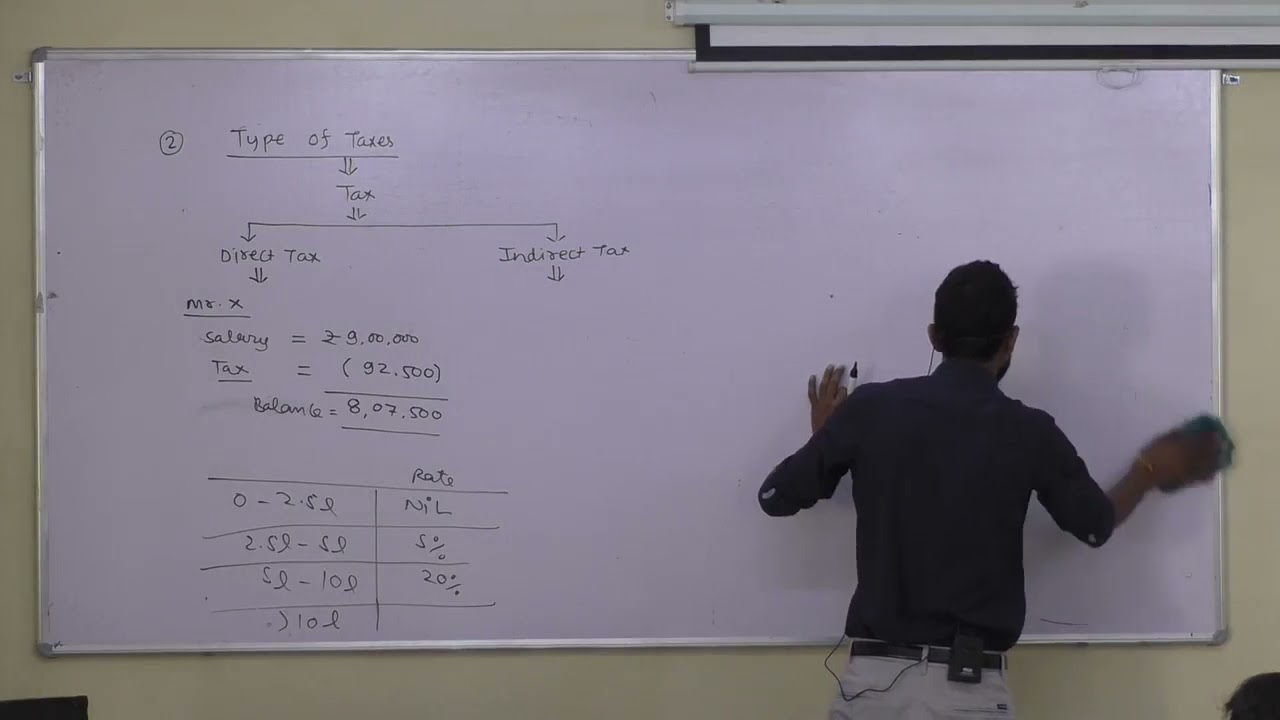 ② Type of Taxes
⇓
Tax
⇓
Direct Tax Indirect Tax
⇓ ⇓
Mr. X
Salary = ₹ 9,00,000
Tax = (92,500)
Balance = 8,07,500
Rate
0 - 2.5l NiL
2.5l - 5l 5%
5l - 10l 20%
>10l